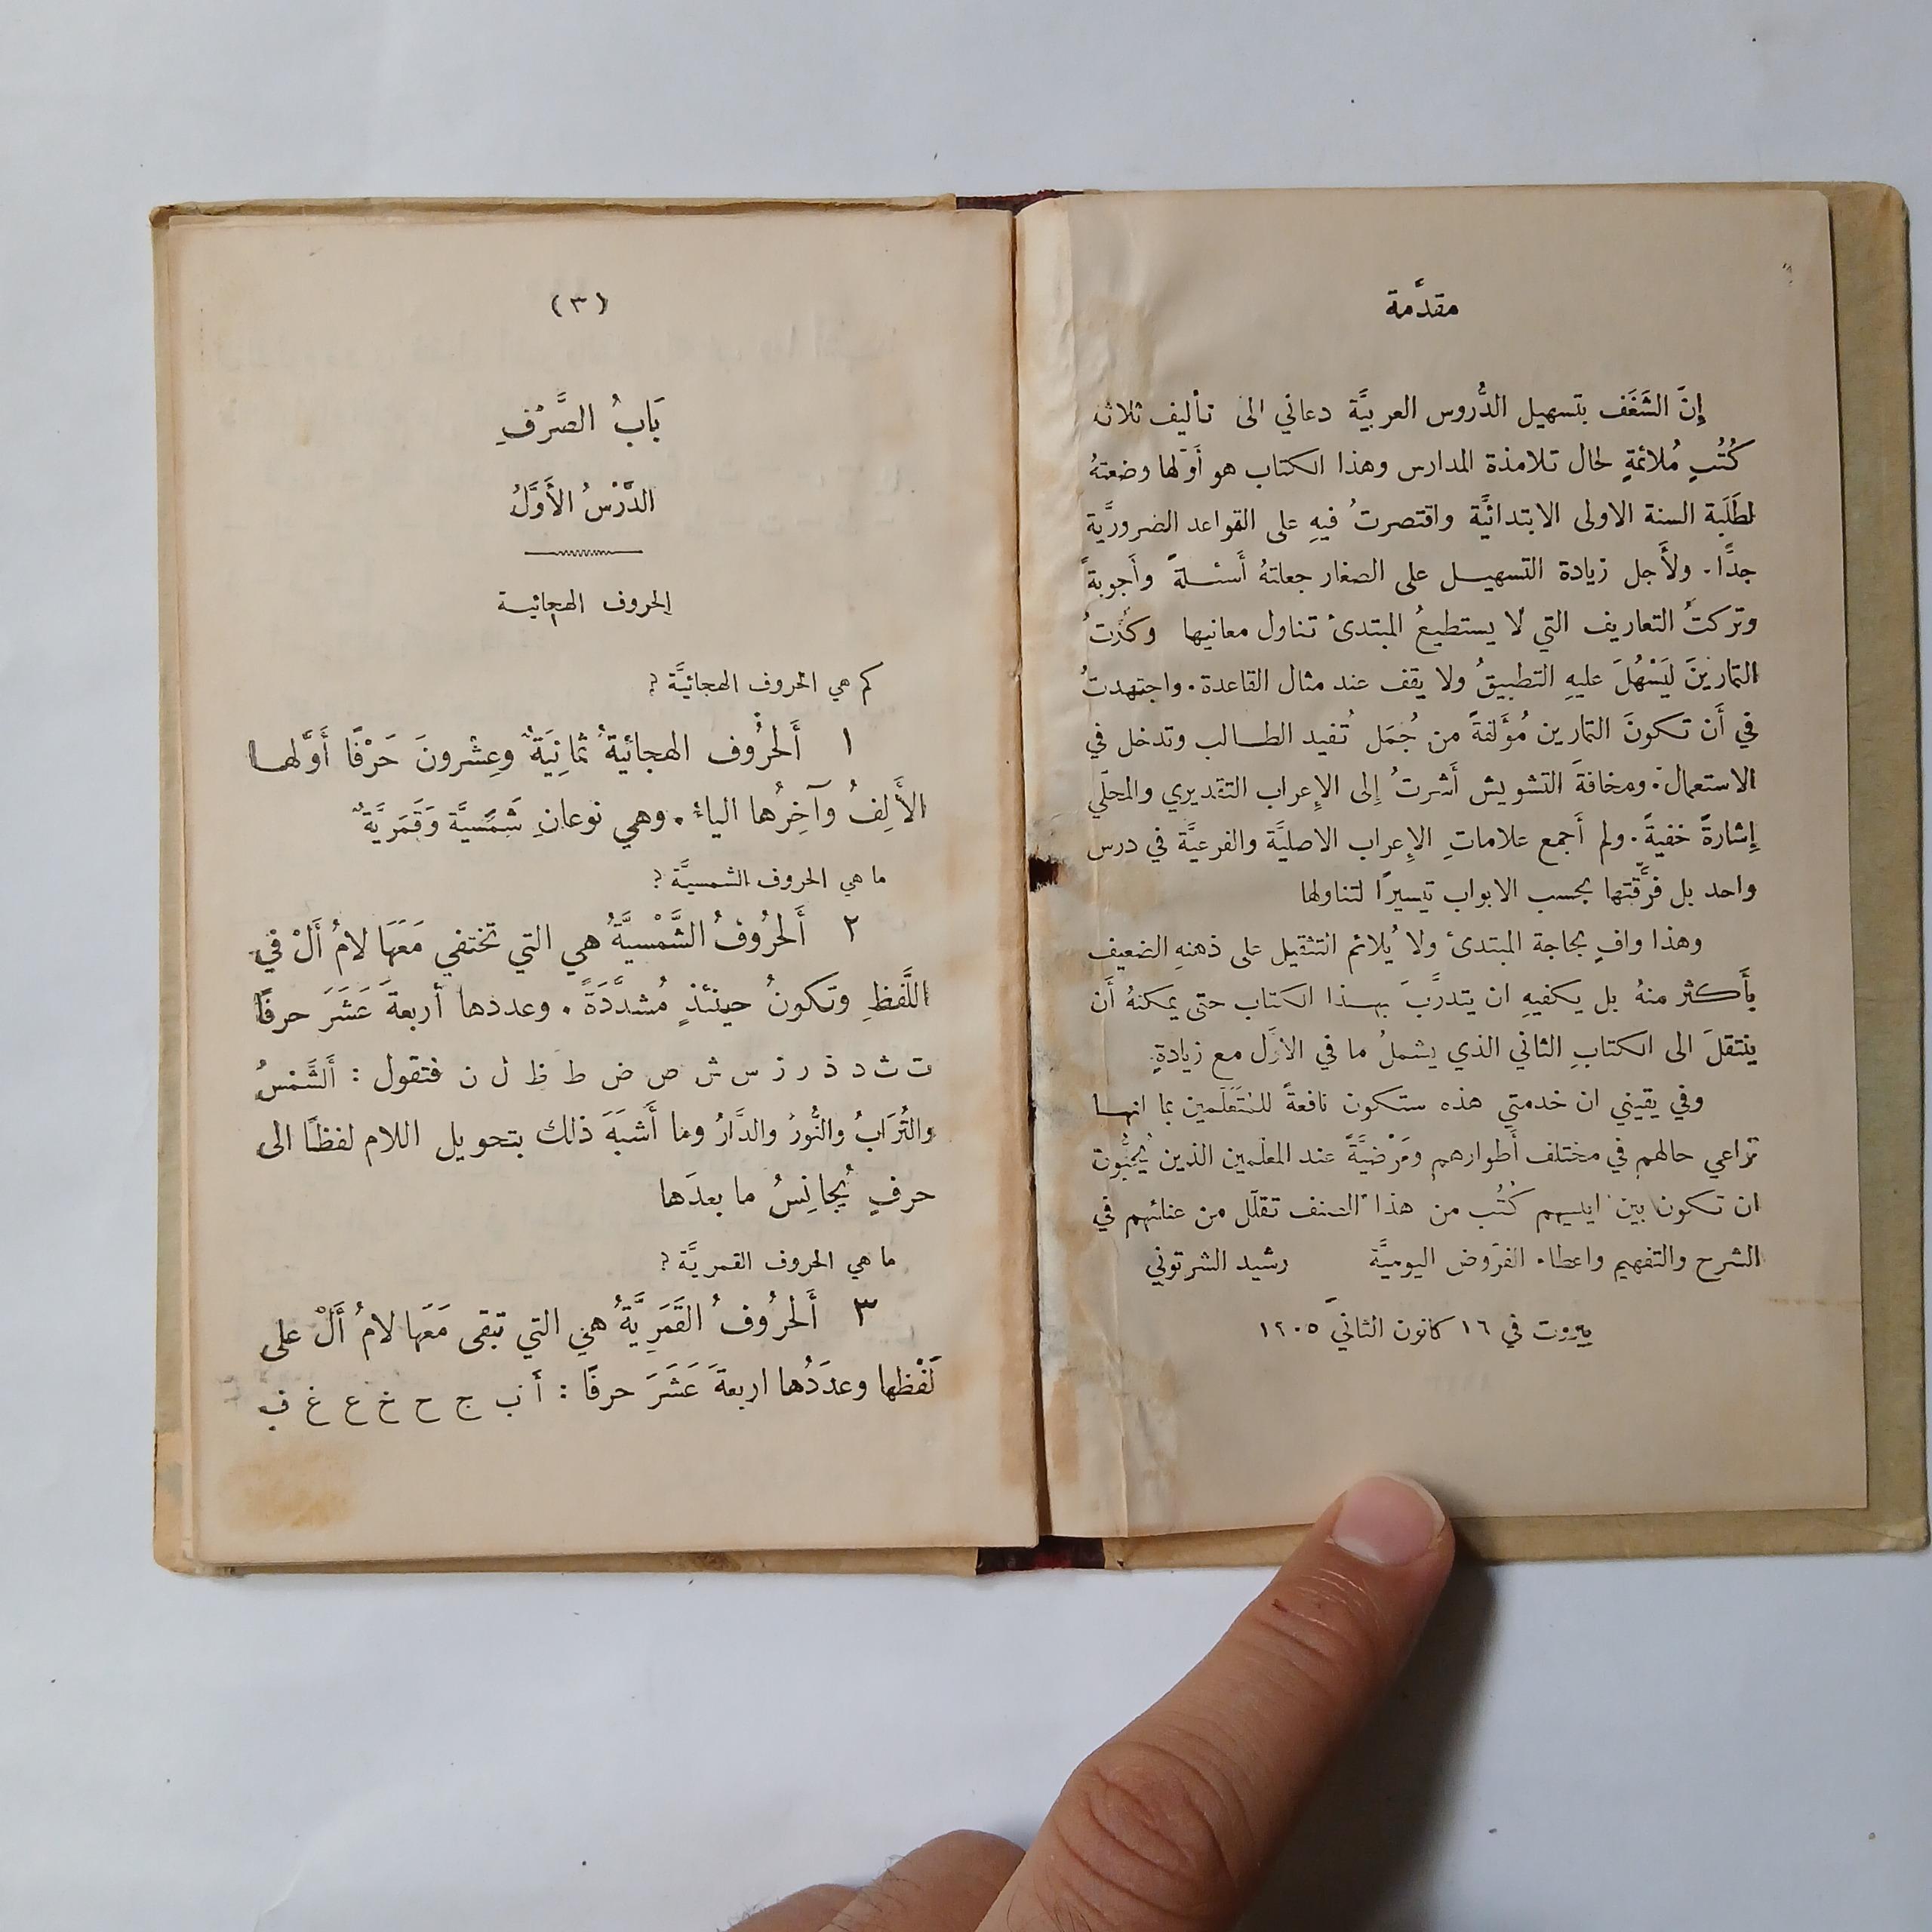 مقدَّمة
إِنَّ الشَّغَف بتسهيل الدُّروس العربيَّة دعاني الى تأليف ثلاثة
كُتُبٍ مُلائمةٍ لحال تلامذة المدارس وهذا الكتاب هو أَوَّلها وضعتهُ
لطَلَبة السنة الاولى الابتدائيَّة واقتصرتُ فيهِ على القواعد الضروريَّة
جدًّا. ولأَجل زيادة التسهيل على الصغار جعلتهُ أَسئلةً وأَجوبةً
وتركتُ التعاريف التي لا يستطيعُ المبتدئ تناول معانيها وكثَّرتُ
التمارينَ ليَسْهُلَ عليهِ التطبيقُ ولا يقف عند مثال القاعدة. واجتهدتُ
في أَن تكونَ التمارين مُؤَلفةً من جُمَل تُفيد الطالب وتدخل في
الاستعمال. ومخافةَ التشويش أَشرتُ إِلى الإِعراب التقديري والمحلّي
إِشارةً خفيةً. ولم أَجمع علاماتِ الإِعراب الاصليَّة والفرعيَّة في درس
واحد بل فرَّقتها بحسب الابواب تيسيرًا لتناولها
وهذا وافٍ بحاجة المبتدئ ولا يُلائم التثقيل على ذهنهِ الضعيف
بأَكثر منهُ بل يكفيهِ ان يتدرَّبَ بهذا الكتاب حتى يمكنهُ أَن
ينتقلَ الى الكتابِ الثاني الذي يشملُ ما في الاوَّل مع زيادةٍ
وفي يقيني ان خدمتي هذه ستكون نافعةً للمُتعَلّمين بما انها
تراعي حالهم في مختلف أَطوارهم ومَرْضيَّةً عند المعلّمين الذين يُحبُّون
ان تكون بين ايديهم كُتُب من هذا الصنف تقلّل من عنائهم في
الشرح والتفهيم واعطاء الفروض اليوميَّة رشيد الشرتوني
بيروت في ١٦ كانون الثاني ١٩٠٥
(٣)
بَابُ الصَّرْفِ
الدَّرْسُ الأَوَّلُ
الحروف الهجائية
كم هي الحروف الهجائيَّة ؟
١ أَلحُرُوف الهجائيةُ ثمانِيَةٌ وعِشرونَ حَرْفًا أَوَّلها
الأَلِفُ وآخِرُها الياءُ. وهي نوعانِ شَمْسيَّة وَقَمَريَّةٌ
ما هي الحروف الشمسيَّة ؟
٢ أَلحُرُوفُ الشَّمْسيَّةُ هي التي تختفي مَعَهَا لامُ أَلْ في
اللَّفظِ وتكونُ حينئذٍ مُشدَّدَةً. وعددها أربعةَ عَشَرَ حرفًا
ت ث د ذ ر ز س ش ص ض ط ظ ل ن فتقول : أَلشَّمْسُ
والتُرَابُ والنُّورُ والدَّارُ وما أَشبَهَ ذلك بتحويل اللام لفظًا الى
حرفٍ يُجانِسُ ما بعدَها
ما هي الحروف القمريَّة ؟
٣ أَلحُرُوفُ القَمَرِيَّةُ هي التي تبقى مَعَها لامُ أَلْ على
لَفْظِها وعدَدُها اربعةَ عَشَرَ حرفًا : أ ب ج ح خ ع غ ف